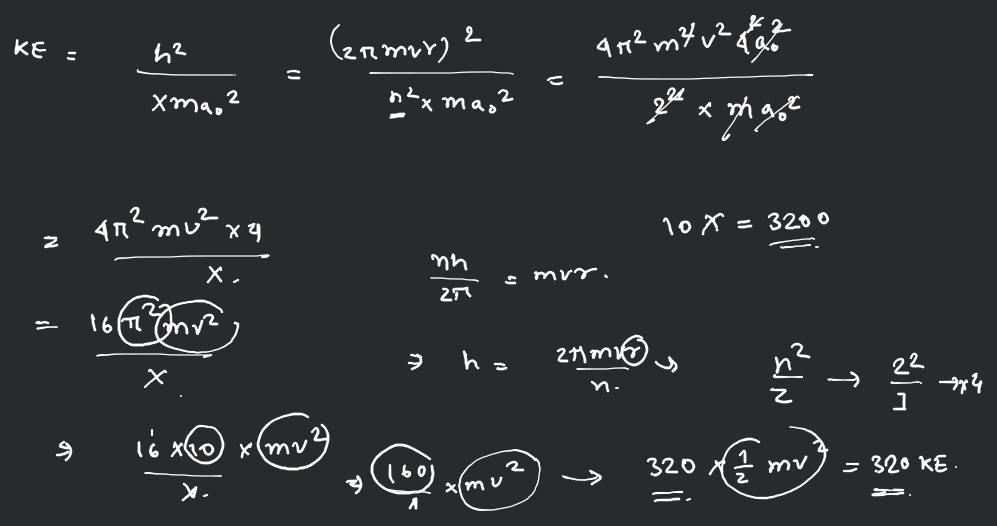 KE = h² / xma₀² = (2πmvr)² / n² x ma₀² = 4π² m² v² 4² a₀² / 2² x m a₀²
= 4π² mv² x 4 / x.
10 x = 3200
nh / 2π = mvr.
= 16 π² mv² / x
⇒ h = 2πmvr / n. → n² / z → 2² / 1 → x4
⇒ 16 x 10 x mv² / x. ⇒ 160 / x x mv² → 320 x 1/2 mv² = 320 KE.